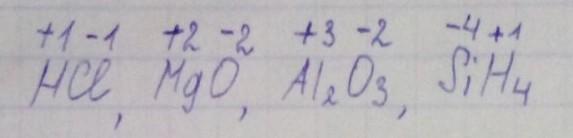 +1 -1 +2 -2 +3 -2 -4 +1
HCl, MgO, Al₂O₃, SiH₄